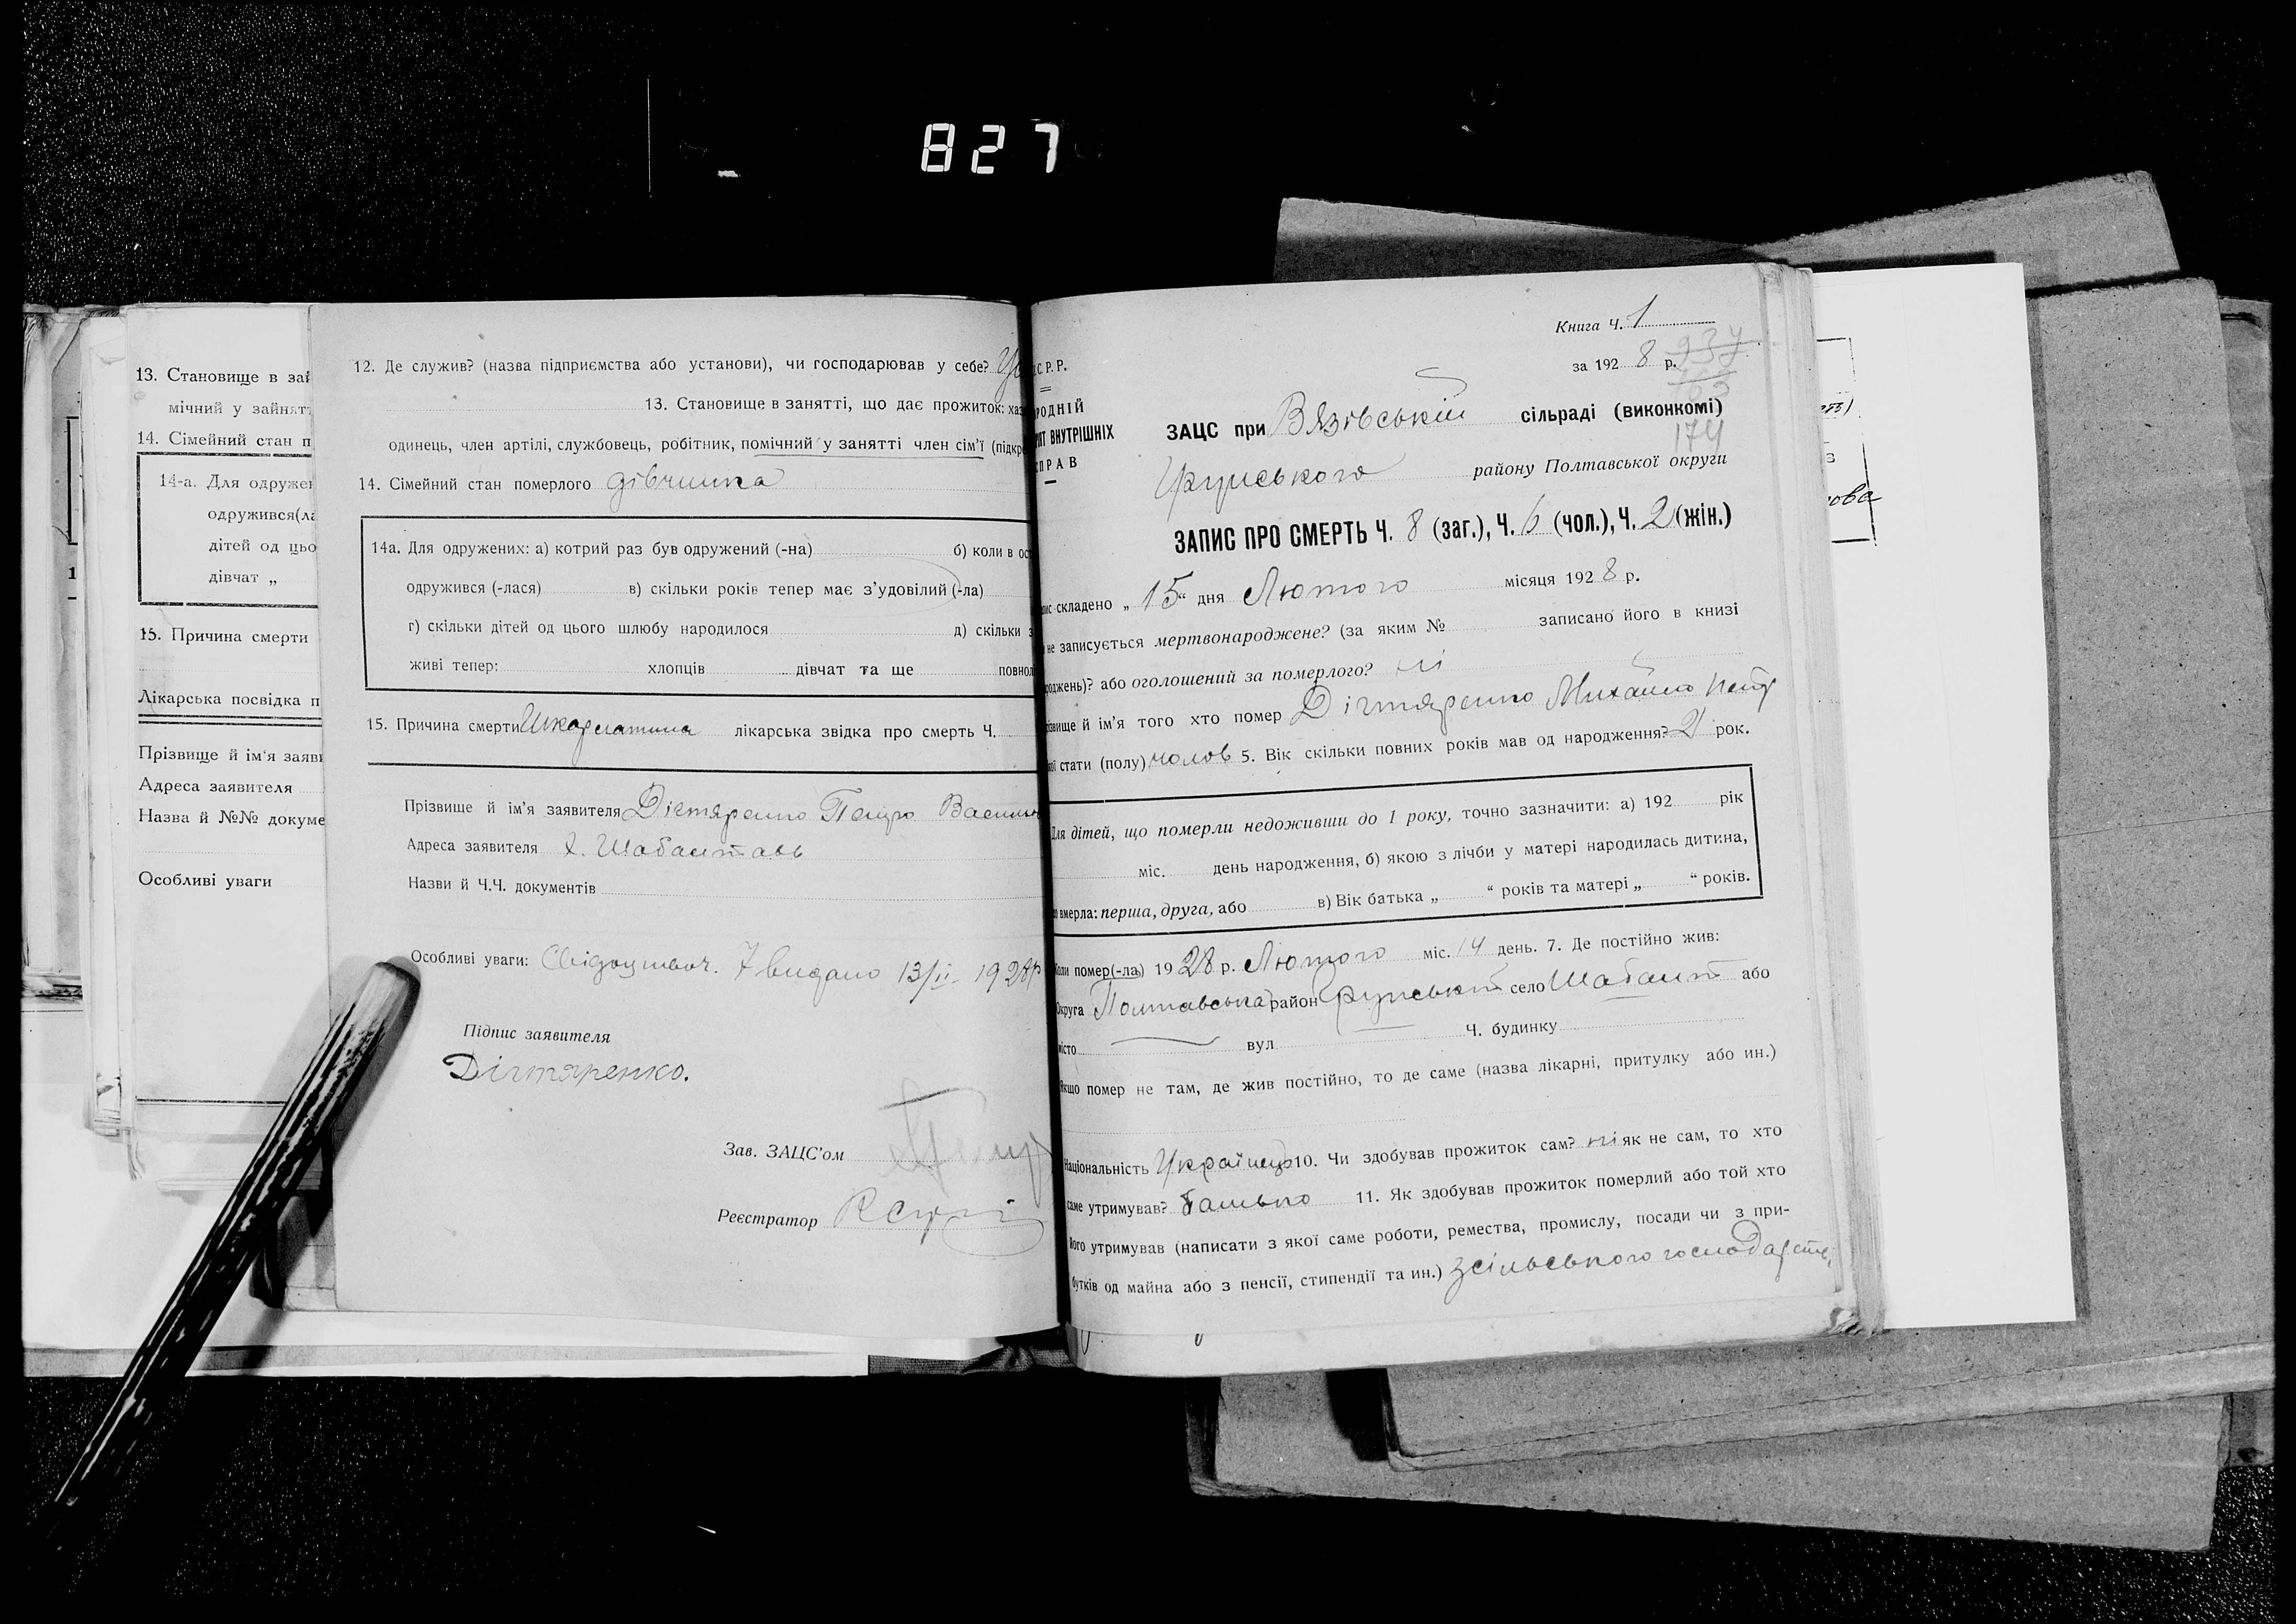 827
13. Становище в зай
мічний у зайнят
14. Сімейний стан п
14-а. Для одружен
одружився(ла
дітей од цьо
дівчат „
15. Причина смерти
Лікарська посвідка п
Прізвище й ім'я заяви
Адреса заявителя
Назва й №№ докуме
Особливі уваги
12. Де служив? (назва підприємства або установи), чи господарював у себе?
13. Становище в занятті, що дає прожиток: хаз
одинець, член артілі, службовець, робітник, помічний у занятті член сім'ї (підкр
14. Сімейний стан померлого дівчинка
14а. Для одружених: а) котрий раз був одружений (-на) б) коли в ос
одружився (-лася) в) скільки років тепер має з'удовілий (-ла)
г) скільки дітей од цього шлюбу народилося д) скільки з
живі тепер: хлопців дівчат та ще повнол
15. Причина смерти Шкарлатина лікарська звідка про смерть Ч.
Прізвище й ім'я заявителя Дігтяренко Петро Васильо
Адреса заявителя х. Шабалтаєв
Назви й Ч.Ч. документів
Особливі уваги: Свідоцтвоч. 7 видано 13/II- 1928р
Підпис заявителя
Дігтяренко.
Зав. ЗАЦС'ом
Реєстратор
Книга Ч. 1
за 192 8 р. 937
С.Р.Р.
РОДНІЙ
ЯТ ВНУТРІШНІХ
ПРАВ
ЗАЦС при Вязівській сільраді (виконкомі)
174
Грунського району Полтавської округи
ЗАПИС ПРО СМЕРТЬ Ч. 8 (заг.), Ч. 6 (чол.), Ч. 2 (жін.)
пис складено „ 15 “ дня Лютого місяця 192 8 р.
не записується мертвонароджене? (за яким № записано його в книзі
роджень)? або оголошений за померлого? ні
ізвище й ім'я того хто помер Дігтяренко Михайло Петр
кої стати (полу) чолов 5. Вік скільки повних років мав од народження? 2 рок.
Для дітей, що померли недоживши до 1 року, точно зазначити: а) 192 рік
міс. день народження, б) якою з лічби у матері народилась дитина,
о вмерла: перша, друга, або в) Вік батька „ “ років та матері „ “ років.
Коли помер(-ла) 19 28 р. Лютого міс. 14 день. 7. Де постійно жив:
Округа Полтавська район Грунський село Шабалт або
місто вул Ч. будинку
Якщо помер не там, де жив постійно, то де саме (назва лікарні, притулку або ин.)
Національність Українець 10. Чи здобував прожиток сам? ні як не сам, то хто
саме утримував? батько 11. Як здобував прожиток померлий або той хто
його утримував (написати з якої саме роботи, ремества, промислу, посади чи з при-
бутків од майна або з пенсії, стипендії та ин.) зсільського господарств.